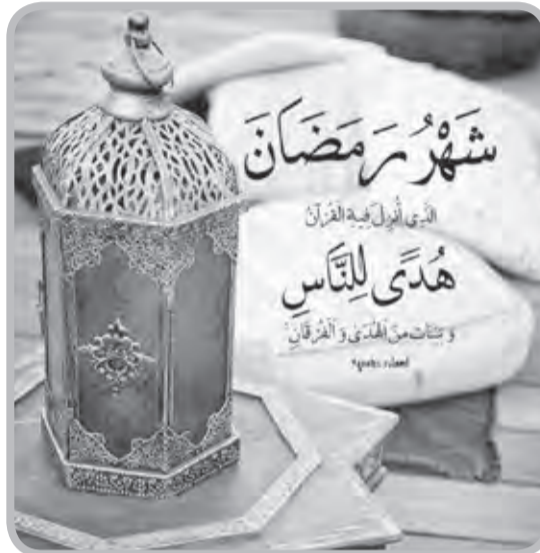 شَهْرُ رَمَضَانَ
الَّذِي أُنْزِلَ فِيهِ الْقُرْآنُ
هُدًى لِلنَّاسِ
وَ بَيِّنَاتٍ مِنَ الْهُدَى وَ الْفُرْقَانِ